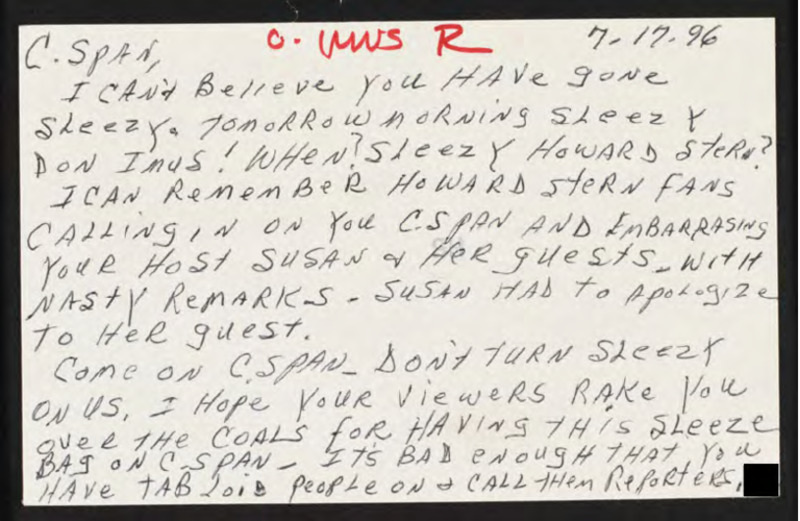 7-17-96
C. SPAN,
I CAN't Believe You HAVe gone
Sleezy. TomoRRow moRNiNg Sleezy
DoN Imus! WHeN? Sleezy HowARD SteRN?
I CAN RemembeR HowARD SteRN FANS
CALLiNg iN oN You C.SPAN AND EmBARRASiNg
YouR Host SuSAN & HeR guests - with
NASty RemARKS - SuSAN HAD to Apologize
to HeR guest.
Come oN C.SPAN - DoN't tuRN Sleezy
oN us. I Hope YouR VieweRs RAKe You
oveR tHe COALS foR HAViNg tHiS Sleeze
BAg oN C.SPAN - It's BAD eNough THAt You
HAVe TABloiD people oN & CALL tHem RepoRteRs.